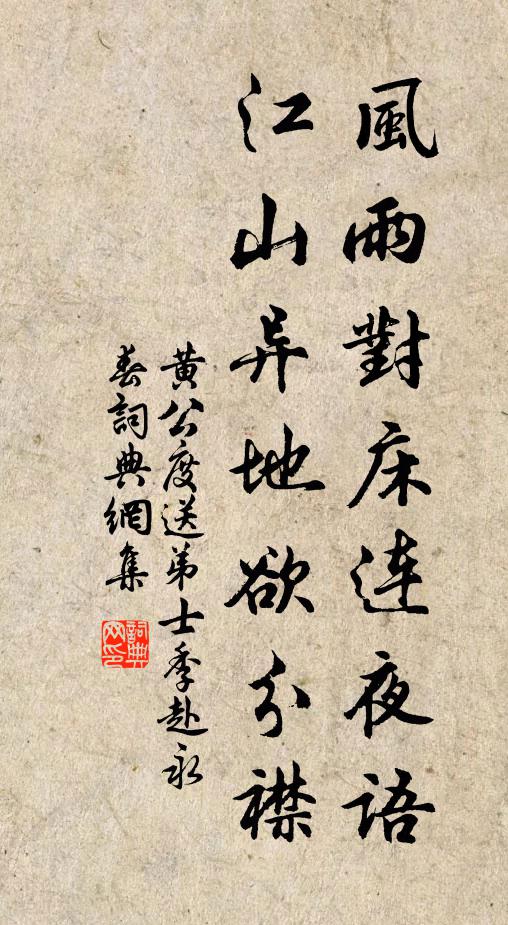 風雨對床連夜語
江山异地欲分襟
黄公度送弟士季赴永
春詞典網集
詞典网印